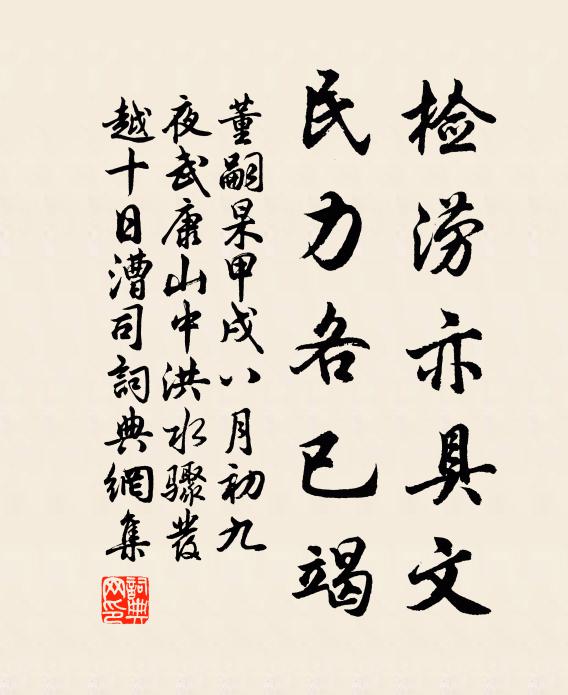 检涝亦具文
民力各已竭
董嗣杲甲戌八月初九
夜武康山中洪水骤發
越十日漕司詞典網集
詞典網印